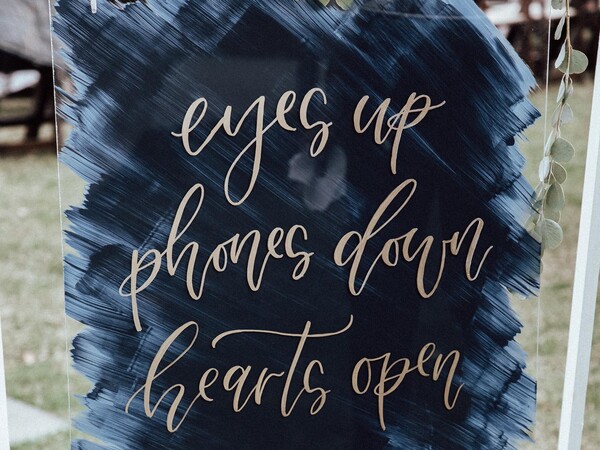 eyes up
phones down
hearts open